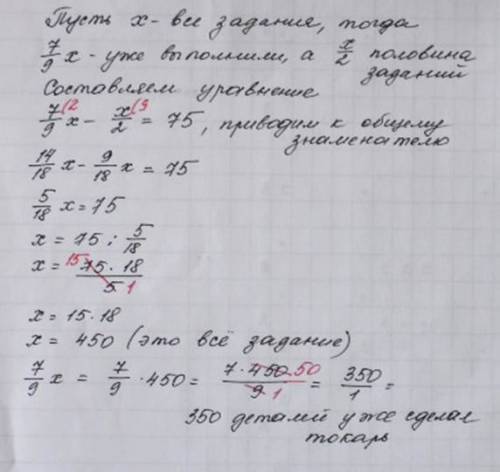 Пусть x - все задания, тогда
7/9 x - уже выполнили, а x/2 половина
заданий
Составляем уравнение
7/9 (2 x - x/2 (9 = 75, приводим к общему
знаменателю
14/18 x - 9/18 x = 75
5/18 x = 75
x = 75 : 5/18
x = 15 75 · 18 / 5 1
x = 15 · 18
x = 450 (это всё задание)
7/9 x = 7/9 · 450 = 7 · 450 50 / 9 1 = 350/1 =
350 деталей уже сделал
токарь